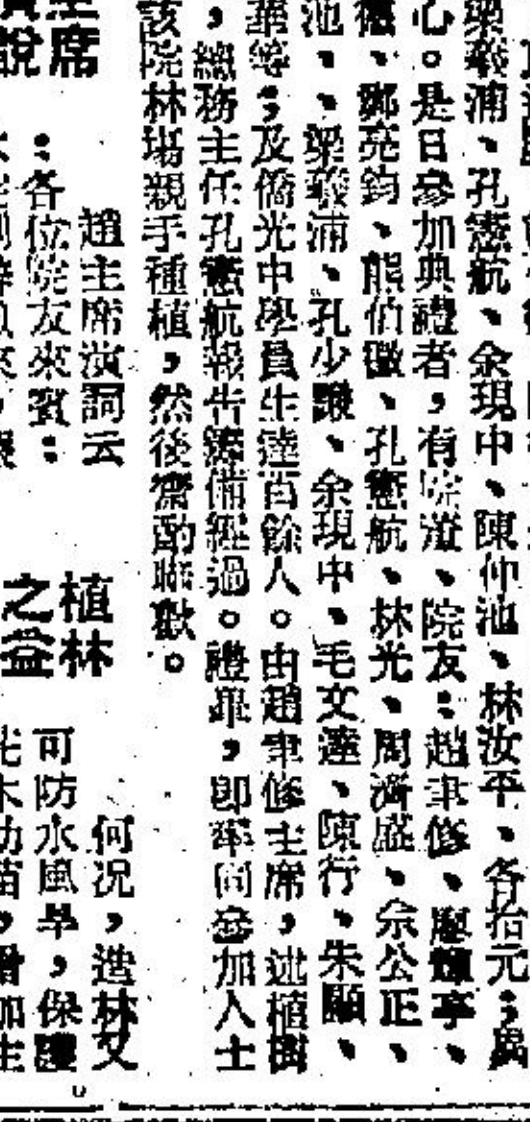 梁羲浦、孔憲航、余現中、陳仲池、林汝平、各拾元；廣
心。是日參加典禮者，有院董、院友：趙聿修、廖德亭、
德、鄭亮鈞、熊伯徽、孔憲航、林光、周濟盛、佘公正、
池、、梁羲浦、孔少讓、余現中、毛文達、陳行、朱顯、
華等；及僑光中學員生達百餘人。由趙聿修主席，述植樹
，總務主任孔憲航報告籌備經過。禮畢，即率同參加人士
該院林場親手種植，然後齋酌晞獻。
主席
演說
趙主席演詞云
：各位院友來賓：
植林
之益
何况，造林又
可防水風旱，保護